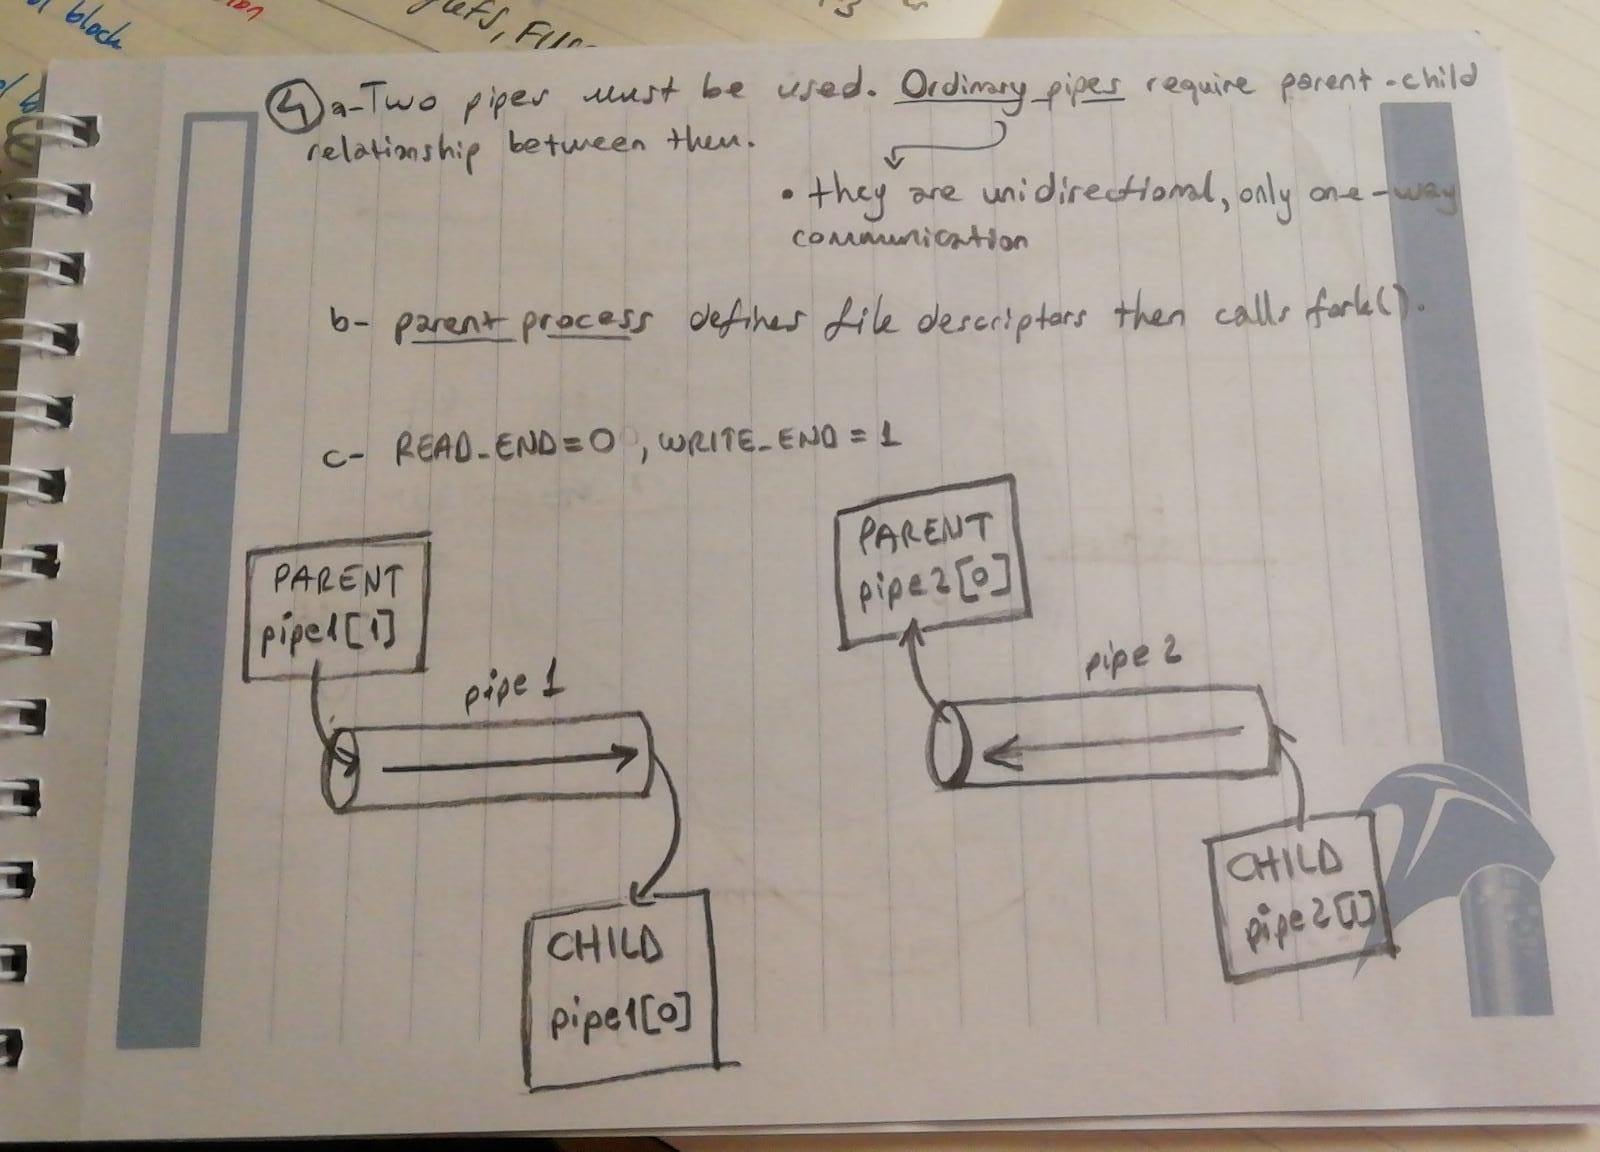 ol block
uefs, File
4 a-Two pipes must be used. Ordinary pipes require parent-child
relationship between them.
• they are unidirectional, only one-way
communication
b- parent process defines file descriptors then calls fork().
c- READ_END=0, WRITE_END=1
PARENT
pipe1[1]
pipe 1
CHILD
pipe1[0]
PARENT
pipe2[0]
pipe 2
CHILD
pipe2[1]